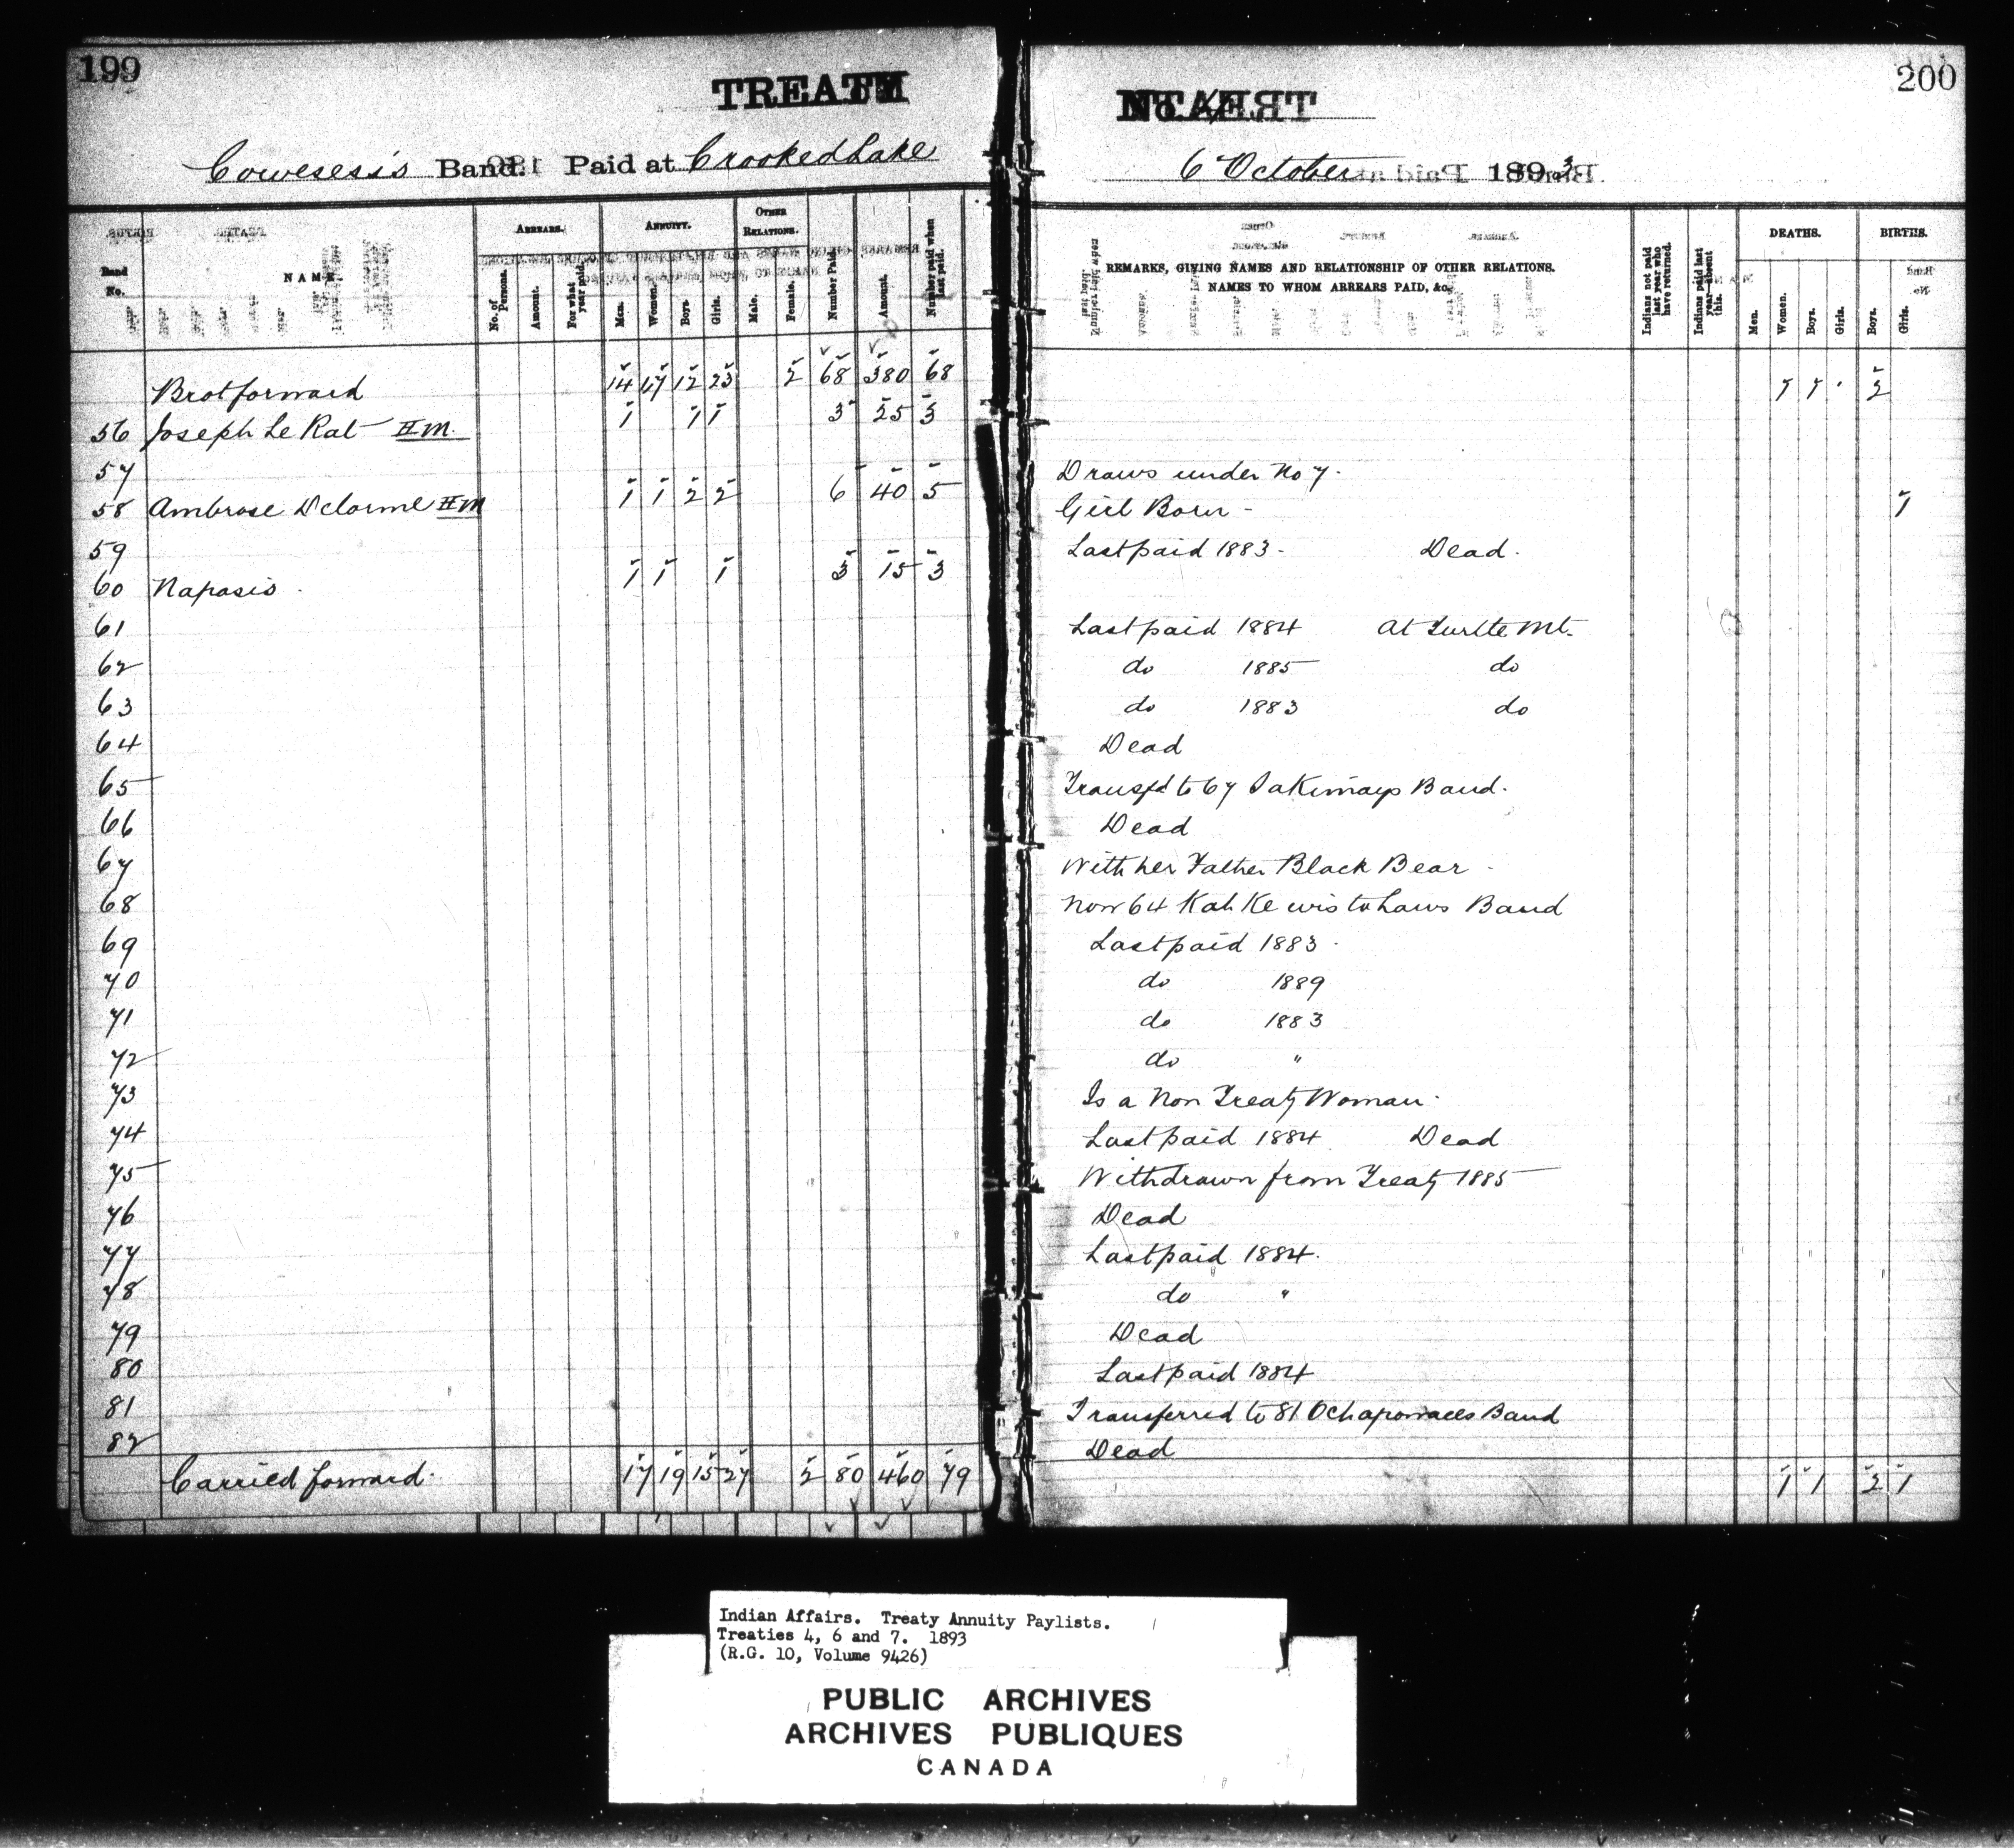 199
200
TREATY
No. 4
Cowesess's Band. Paid at Crooked Lake
6 October 1893.
Band No.
NAME
ARREARS.
No. of Persons.
Amount.
For what year paid.
ANNUITY.
Men.
Women.
Boys.
Girls.
OTHER RELATIONS.
Male.
Female.
Number Paid.
Amount.
Number paid when last paid.
REMARKS, GIVING NAMES AND RELATIONSHIP OF OTHER RELATIONS.
NAMES TO WHOM ARREARS PAID, &c.
Indians not paid last year who have returned.
Indians paid last year—absent this.
DEATHS.
Men.
Women.
Boys.
Girls.
BIRTHS.
Boys.
Girls.
Brot forward 14 17 12 23 2 68 380 68 1 1 2
56 Joseph Le Rat II M. 1 1 1 3 25 3
57 Draws under No 7.
58 Ambrose Delorme II M 1 1 2 2 6 40 5 Girl Born - 1
59 Last paid 1883 - Dead.
60 Napasis 1 1 1 3 15 3
61 Last paid 1884 At Turtle Mt.
62 do 1885 do
63 do 1883 do
64 Dead
65 Transfd to 67 Sakimays Band.
66 Dead
67 With her Father Black Bear -
68 Now 64 Kah Ke wis to haws Band
69 Last paid 1883.
70 do 1889
71 do 1883
72 do "
73 Is a Non Treaty Woman.
74 Last paid 1884 Dead
75 Withdrawn from Treaty 1885
76 Dead
77 Last paid 1884.
78 do "
79 Dead
80 Last paid 1884
81 Transferred to 81 Ochapowaces Band
82 Dead
Carried forward. 17 19 15 27 2 80 460 79 1 1 2 1
Indian Affairs. Treaty Annuity Paylists.
Treaties 4, 6 and 7. 1893
(R.G. 10, Volume 9426)
PUBLIC ARCHIVES
ARCHIVES PUBLIQUES
CANADA